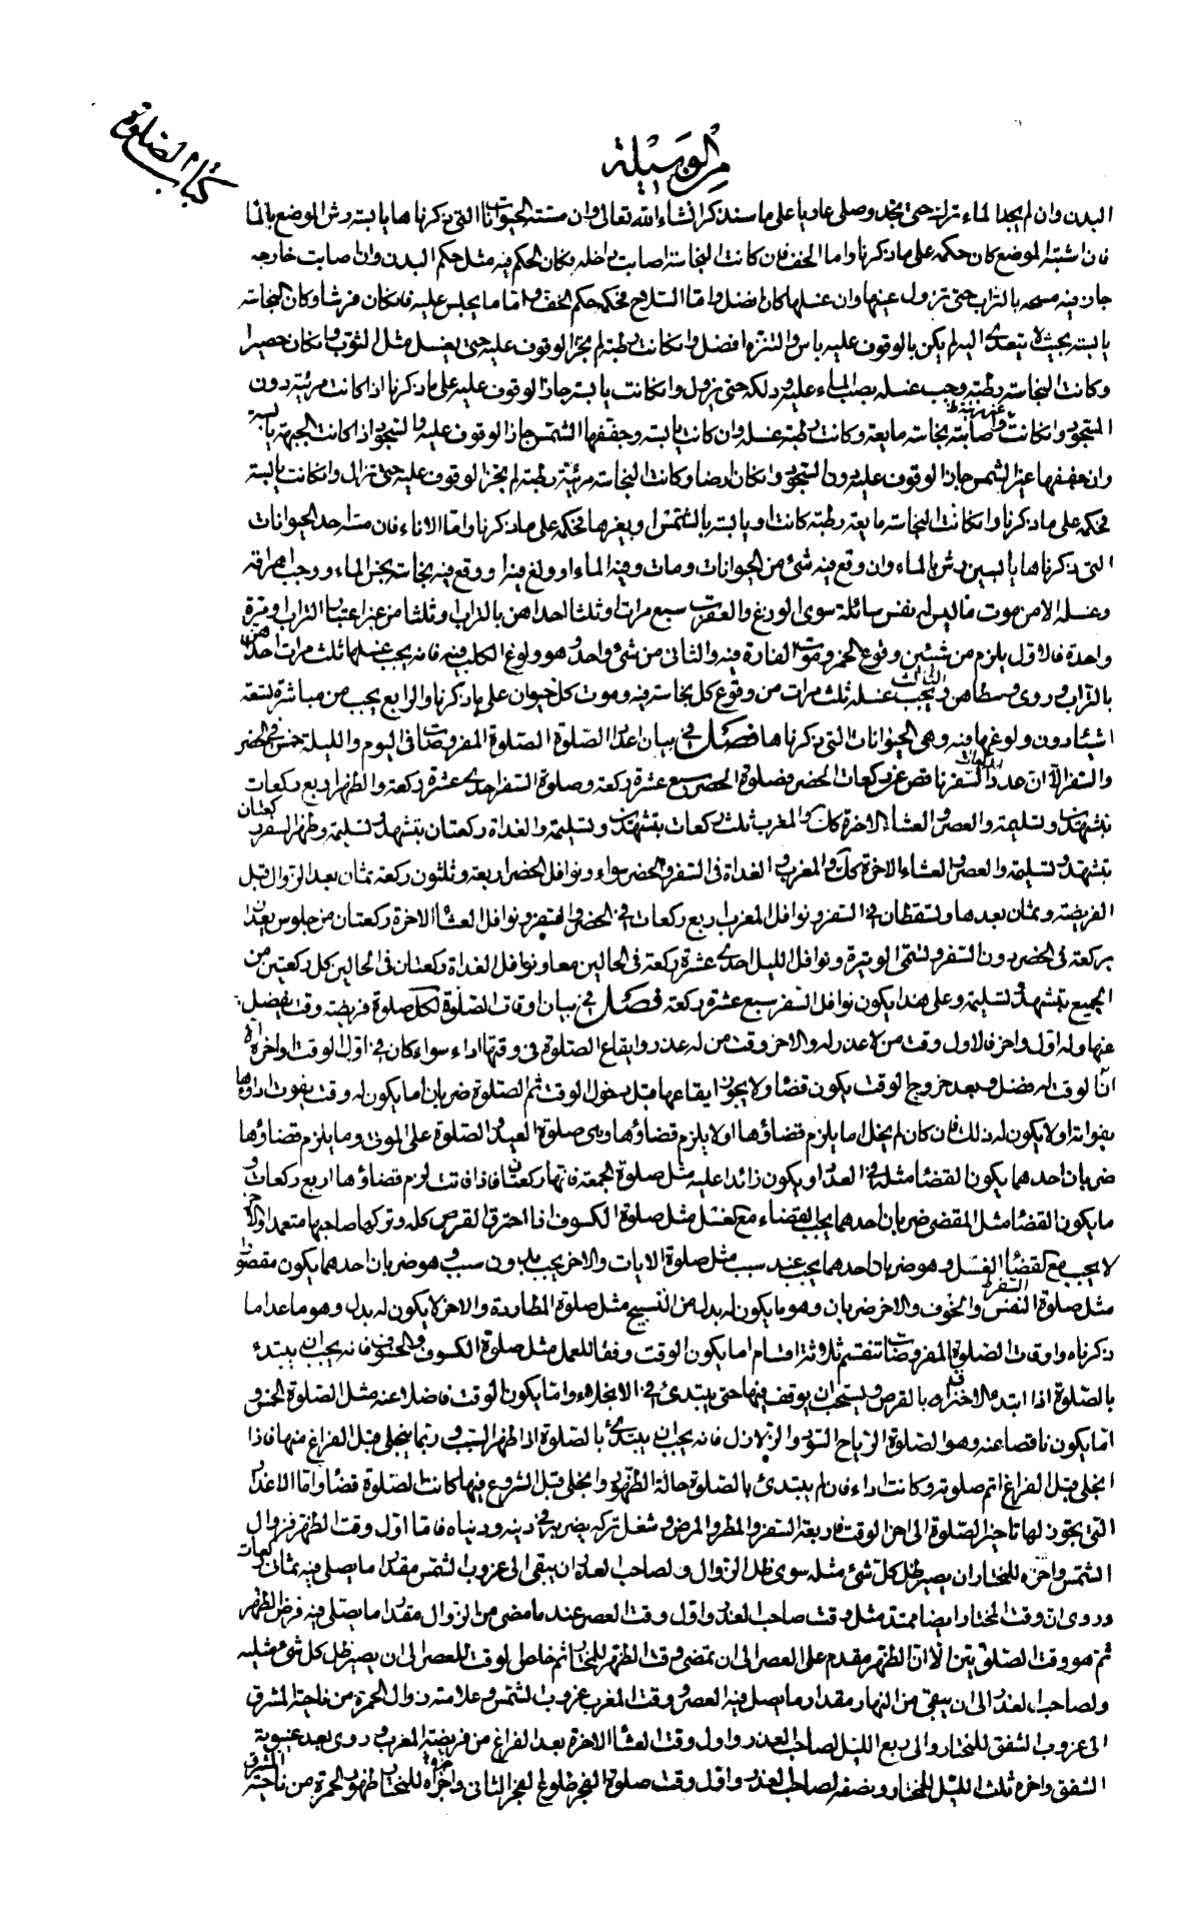 كتاب الصلوة
من الوسيلة
البدن وان لم يجد الماء تركه حتى يجد وصلى عاريا على ما سنذكر انشاء الله تعالى وان مسته الحيوانات التي ذكرناها يابسة رش الموضع بالماء
فان اشتبه الموضع كان حكمه على ما ذكرنا واما الخف فان كانت النجاسة اصابت داخله فكان الحكم فيه مثل حكم البدن وان اصابت خارجه
جاز فيه مسحه بالتراب حتى تزول عينها وان غسلها كان افضل واما السلاح فحكمه حكم الخف واما ما يجلس عليه فان كان فرشا وكان النجاسة
يابسة بحيث لا يتعدى اليه لم يكن بالوقوف عليه باس والتنزه افضل وان كانت رطبة لم يجز الوقوف عليه حتى يغسل مثل الثوب وان كان حصيرا
وكانت النجاسة رطبة وجب غسله بصب الماء عليه ودلكه حتى يزول وان كانت يابسة جاز الوقوف عليه على ما ذكرنا اذا كانت مرئية دون
السجود وان كانت غير مرئية واصابته نجاسة مايعة وكانت رطبة غسله وان كانت يابسة وجففها الشمس جاز الوقوف عليه والسجود اذا كانت الجبهة يابسة
وان جففها غير الشمس جاز الوقوف عليه دون السجود وان كان ارضا وكانت النجاسة مرئية رطبة لم يجز الوقوف عليه حتى تزال وان كانت يابسة
فحكمه على ما ذكرنا وان كانت النجاسة مايعة رطبة كانت او يابسة بالشمس او بغيرها فحكمه على ما ذكرنا واما الاناء فان مسته احد الحيوانات
التي ذكرناها يابسين رش بالماء وان وقع فيه شئ من الحيوانات ومات وفيه الماء او ولغ فيه او وقع فيه نجاسة نجس الماء ووجب اهراقه
وغسله الا من موت ما ليس له نفس سائلة سوى الوزغ والعقرب سبع مرات وثلثا احداهن بالتراب وثلثا من غير اعتبار التراب ومرة
واحدة فالاول يلزم من شيئين وقوع الخمر وموت الفارة فيه والثاني من شئ واحد وهو ولوغ الكلب فيه فانه يجب غسلها ثلث مرات احداهن
بالتراب وروى وسطاهن والثالث يجب غسله ثلث مرات من وقوع كل نجاسة فيه وموت كل حيوان على ما ذكرنا والرابع يجب من مباشرة تسعة
اشياء دون ولوغها فيه وهي الحيوانات التي ذكرناها فصل في بيان اعداد الصلوة الصلوة المفروضات في اليوم والليلة خمس في الحضر
والسفر الا ان عدد ركعات السفر ناقص عن ركعات الحضر فصلوة الحضر سبع عشرة ركعة وصلوة السفر احدى عشرة ركعة والظهر اربع ركعات
بتشهدين وتسليمة والعصر والعشاء الاخرة كذلك والمغرب ثلث ركعات بتشهدين وتسليمة والغداة ركعتان بتشهد وتسليمة وظهر السفر ركعتان
بتشهد وتسليمة والعصر والعشاء الاخرة كذلك والمغرب والغداة في السفر والحضر سواء ونوافل الحضر اربعة وثلثون ركعة ثمان بعد الزوال قبل
الفريضة وثمان بعدها وتسقطان في السفر ونوافل المغرب اربع ركعات في الحضر والسفر ونوافل العشاء الاخرة ركعتان من جلوس يعدان
بركعة في الحضر دون السفر وتسمى الوتيرة ونوافل الليل احدى عشرة ركعة في الحالين معا ونوافل الغداة ركعتان في الحالين كل ركعتين من
الجميع بتشهد وتسليمة وعلى هذا يكون نوافل السفر سبع عشرة ركعة فصل في بيان اوقات الصلوة لكل صلوة فريضة وقت يفضل
عنها وله اول واخر فالاول وقت من لا عذر له والاخر وقت من له عذر وايقاع الصلوة في وقتها اداء سواء كان في اول الوقت او اخره الا
ان اول الوقت افضل وبعد خروج الوقت يكون قضاء ولا يجوز ايقاعها قبل دخول الوقت ثم الصلوة ضربان اما يكون له وقت يفوت اداؤها
بفواته او لا يكون له ذلك فان كان لم يخل اما يلزم قضاؤها او لا يلزم قضاؤها وهي صلوة العيد والصلوة على الموتى وما يلزم قضاؤها
ضربان احدهما يكون القضاء مثله في العدد او يكون زائدا عليه مثل صلوة الجمعة فانها ركعتان فاذا فاتت لزم قضاؤها اربع ركعات و
ما يكون القضاء مثل المقضى ضربان احدهما يجب القضاء مع غسل مثل صلوة الكسوف اذا احترق القرص كله وتركها صاحبها متعمدا والاخر
لا يجب مع القضاء الغسل وهو ضربان احدهما يجب عند سبب مثل صلوة الايات والاخر يجب بدون سبب وهو ضربان احدهما يكون مقصورا
مثل صلوة السفر والخوف والاخر ضربان وهو ما يكون له بدل من التسبيح مثل صلوة المطاردة والاخر لا يكون له بدل وهو ما عدا ما
ذكرناه واوقات الصلوة المفروضات تنقسم ثلاثة اقسام اما يكون الوقت وفقا للعمل مثل صلوة الكسوف والخسوف فانه يجب ان يبتدئ
بالصلوة اذا ابتدء الاحتراق بالقرص ويستحب ان يوقف فيها حتى يبتدئ في الانجلاء واما يكون الوقت فاضلا عنه مثل الصلوة الخمس و
اما يكون ناقصا عنه وهو الصلوة الرياح السود والزلازل فانه يجب ان يبتدئ بالصلوة اذا ظهر السبب وربما ينجلي قبل الفراغ منها فاذا
انجلى قبل الفراغ اتم صلوته وكانت اداء فان لم يبتدئ بالصلوة حالة الظهور وانجلى قبل الشروع فيها كانت الصلوة قضاء واما الاعذار
التي يجوز لها تاخير الصلوة الى اخر الوقت فاربعة السفر والمطر والمرض وشغل تركه يضر به في دينه ودنياه فاما اول وقت الظهر فزوال
الشمس واخره للمختار ان يصير ظل كل شئ مثله سوى ظل الزوال ولصاحب العذر ان يبقى الى غروب الشمس مقدار ما يصلى فيه ثمان ركعات
وروى ان وقت المختار ايضا ممتد مثل وقت صاحب العذر واول وقت العصر عند ما مضى من الزوال مقدار ما يصلى فيه فرض الظهر
ثم هو وقت الصلوتين الا ان الظهر مقدم على العصر الى ان تمضى وقت الظهر للمختار ثم خاص لوقت للعصر الى ان يصير ظل كل شئ مثليه
ولصاحب العذر الى ان يبقى من النهار مقدار ما يصلى فيه العصر ووقت المغرب غروب الشمس وعلامته زوال الحمرة من ناحية المشرق
الى غروب الشفق للمختار والى ربع الليل لصاحب العذر واول وقت العشاء الاخرة بعد الفراغ من فريضة المغرب وروى بعد غيبوبة
الشفق واخره ثلث الليل للمختار ونصفه لصاحب العذر واول وقت صلوة الفجر طلوع الفجر الثاني واخره للمختار ظهور الحمرة من ناحية المشرق